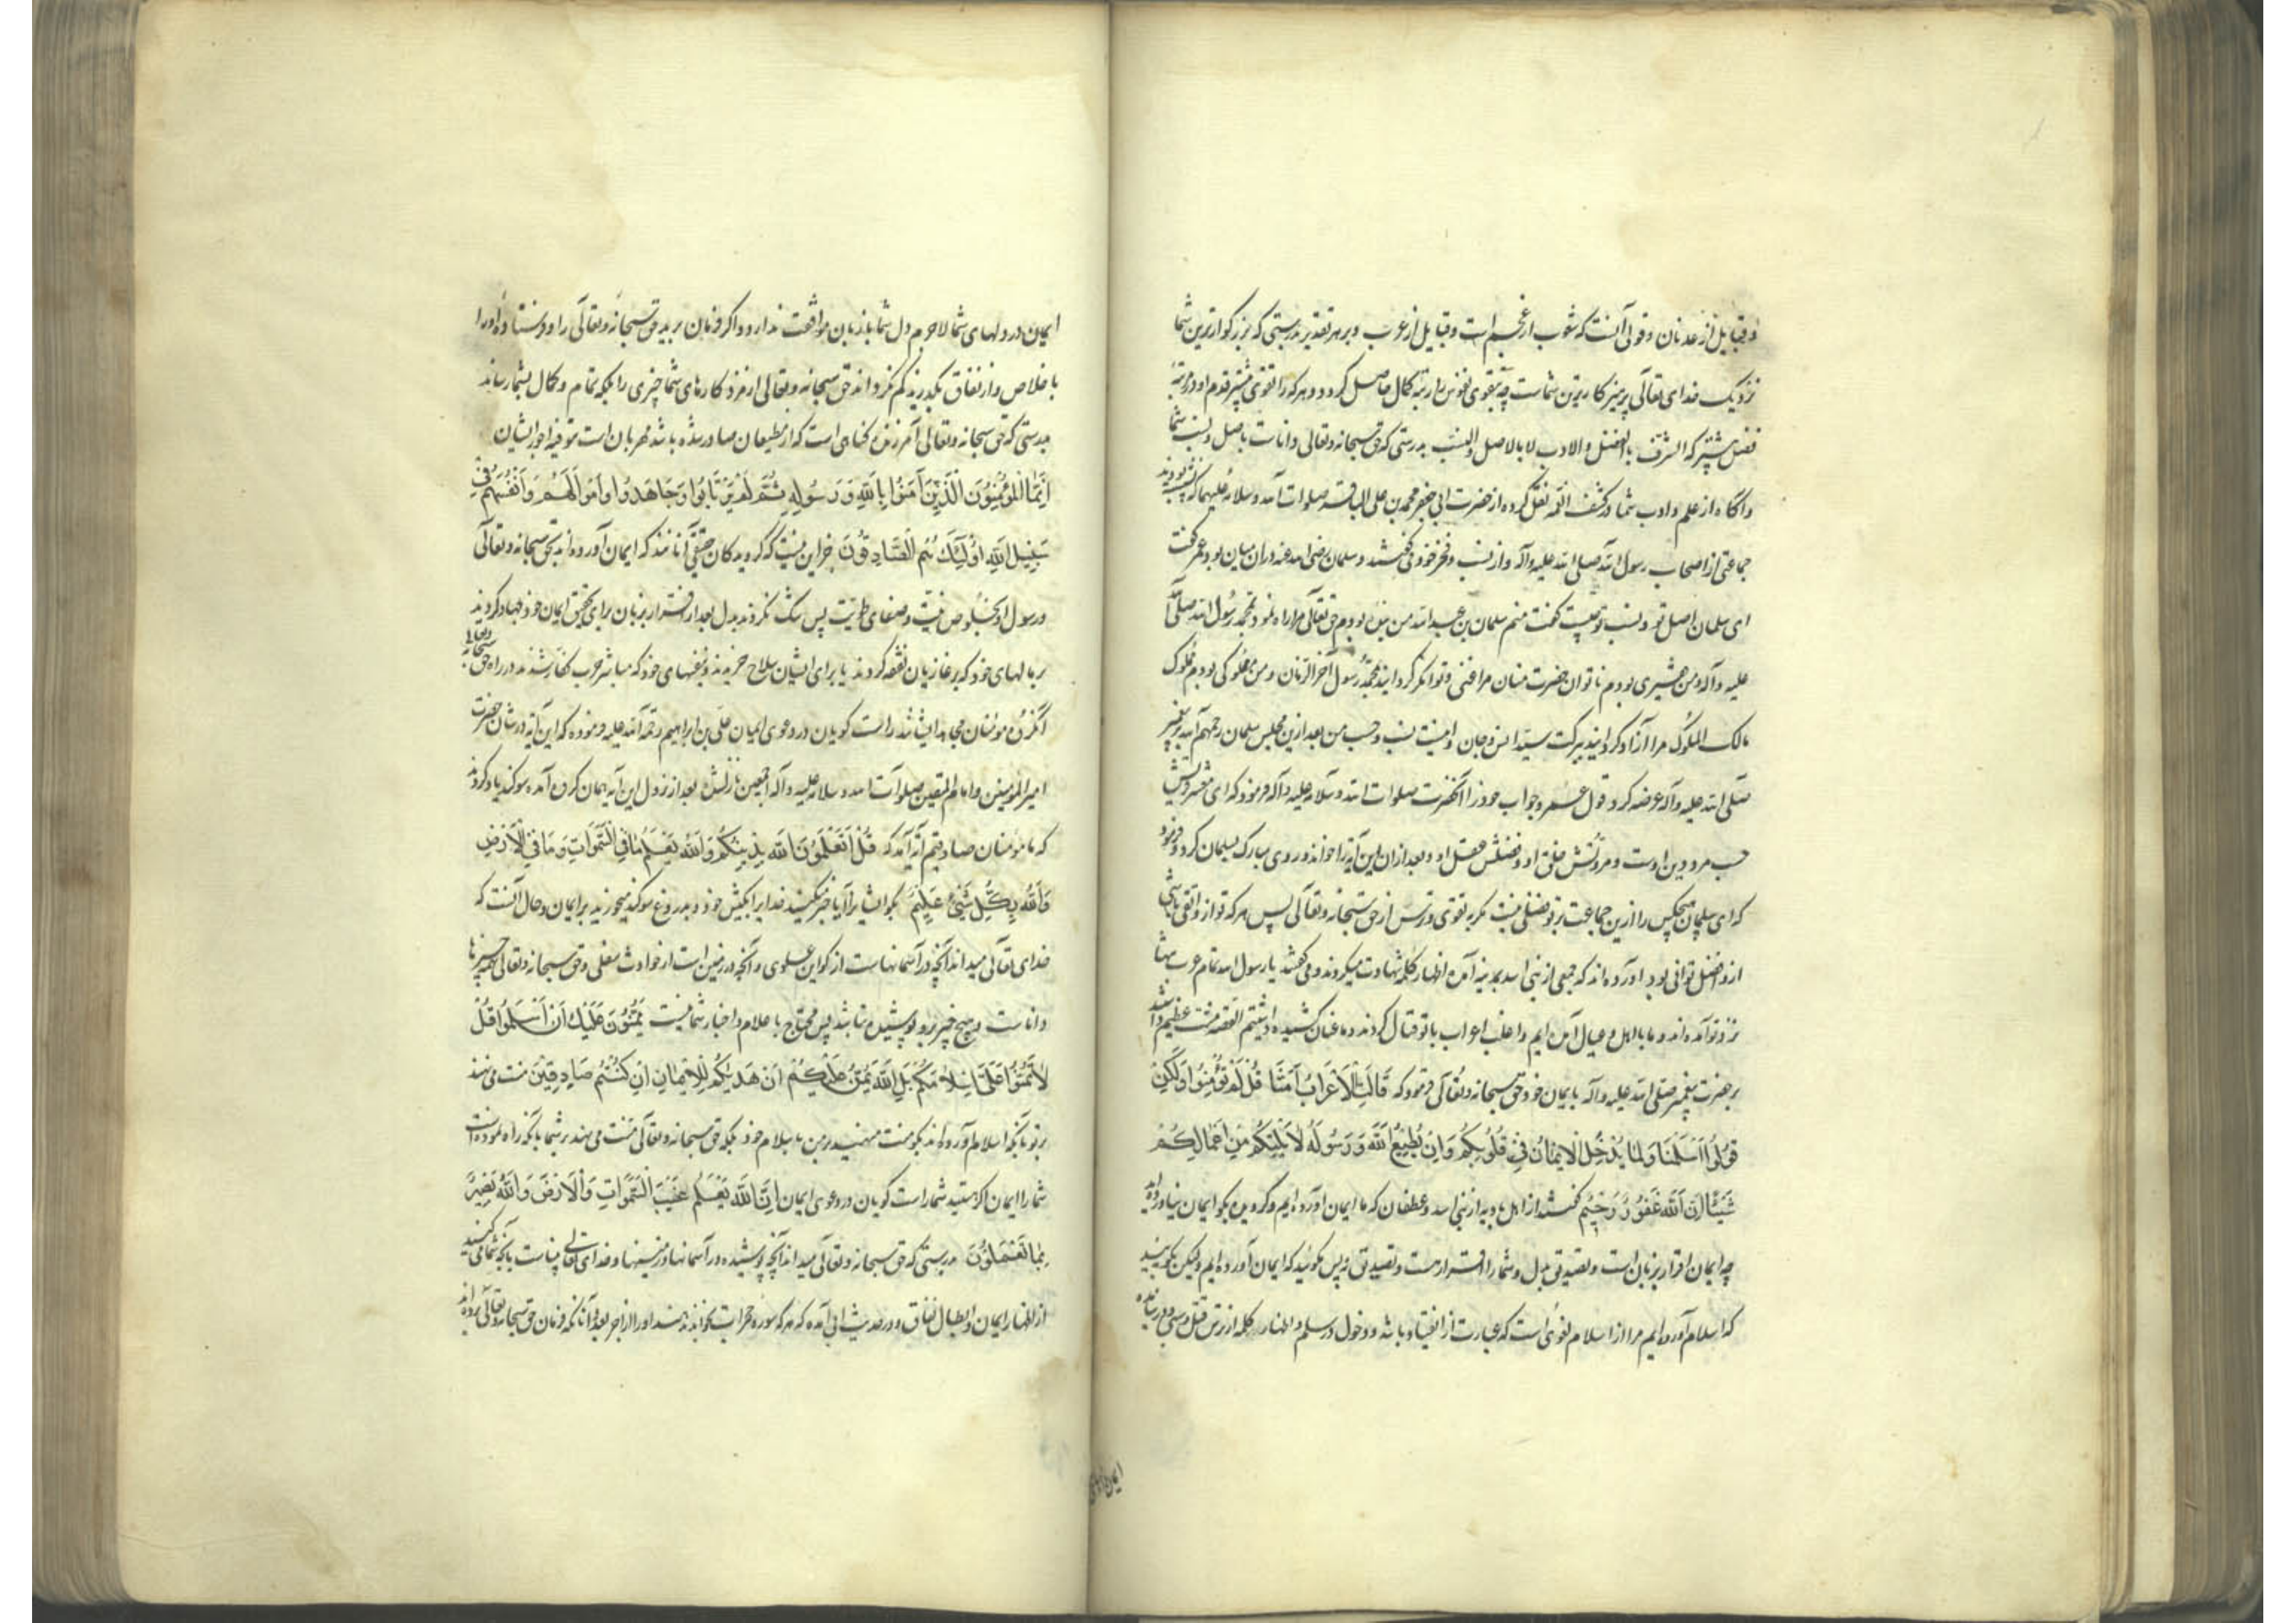 و قبایل از عدنان و قولی آنست که شعوب از عجم است و قبایل از عرب و بر هر تقدیر بدرستی که بزرگوارترین شما
نزدیک خدای تعالی پرهیزکارترین شماست چه بتقوی نفوس را رتبهٔ کمال حاصل گردد و هر که را تقوی بیشتر قدم او در مرتبهٔ
فضل بیشتر که الشرف بالفضل والادب لا بالاصل والنسب بدرستی که حق سبحانه وتعالی داناست باصل و نسب شما
و آگاه از علم و ادب شما در کشف الغمه نقل کرده از حضرت ابی جعفر محمد بن علی الباقر صلوات الله وسلامه علیهما که نشسته بودند
جماعتی از اصحاب رسول الله صلی الله علیه وآله و از نسب و فخر خود می گفتند و سلمان رضی الله عنه در ان میان بود عمر گفت
ای سلمان اصل تو و نسب تو چیست گفت منم سلمان بن عبد الله من بودم حق تعالی مرا راه نمود بمحمد رسول الله صلی الله
علیه وآله ومن بودم ناتوان حضرت منان مرا غنی و توانگر گردانید بمحمد رسول آخر الزمان و من مملوکی بودم مملوک
مالک الملوک مرا آزاد گردانید ببرکت سید انس وجان و اینست نسب و حسب من بعد ازین مجلس سلمان رحمه الله بر پیغمبر
صلی الله علیه وآله عرضه کرد قول عمر وجواب خود را آنحضرت صلوات الله وسلامه علیه وآله فرمود که ای معشر قریش
حسب مرد دین اوست و مروتش خلق او و فضلش عقل او و بعد از ان این آیه را خواند و روی مبارک بسلمان کرد و فرمود
که ای سلمان هیچکس را ازین جماعت بر تو فضلی نیست مگر به تقوی و ترس از حق سبحانه وتعالی پس هر که تو از و اتقی باشی
از و افضل توانی بود اورده اند که جمعی از بنی اسد بمدینه آمده اظهار کلمه شهادت میکردند و می گفتند یا رسول الله تمام عرب تنها
نزد تو آمده اند و ما با اهل و عیال آمده ایم و اغلب اعراب با تو قتال کردند و ما عنان کشیده داشتیم القصه منت عظیم داشتند
بر حضرت پیغمبر صلی الله علیه وآله بایمان خود حق سبحانه وتعالی فرمود که قَالَتِ الْاَعْرَابُ آمَنَّا قُلْ لَمْ تُؤْمِنُوا وَلٰكِنْ
قُولُوا اَسْلَمْنَا وَلَمَّا يَدْخُلِ الْاِيمَانُ فِي قُلُوبِكُمْ وَاِنْ تُطِيعُوا اللهَ وَرَسُولَهُ لَا يَلِتْكُمْ مِنْ اَعْمَالِكُمْ
شَيْئًا اِنَّ اللهَ غَفُورٌ رَحِيمٌ گفتند از اهل بادیه از بنی اسد و غطفان که ما ایمان اورده ایم و گرویده بگو ایمان نیاورده اید
چه ایمان اقرار بزبان است و تصدیق بدل و شما را اقرار هست و تصدیق نه پس مگوئید که ایمان آورده ایم ولیکن بگویید
که اسلام آورده ایم مراد از اسلام لغوی است که عبارت از انقیاد باشد و دخول در سلم و اظهار کلمه از ترس قتل و سبی و در نیامده
ایمان در دلهای
ایمان در دلهای شما لاجرم دل شما با زبان موافقت ندارد و اگر فرمان برید حق سبحانه وتعالی را و فرستادهٔ او را
با خلاص و از نفاق بگذرید کم نگرداند حق سبحانه وتعالی از مزد کارهای شما چیزی را بلکه تمام و کمال بشما رساند
بدرستی که حق سبحانه وتعالی آمرزنده گناهی است که از مطیعان صادر شده باشد مهربان است بتوفیر اجور ایشان
اِنَّمَا الْمُؤْمِنُونَ الَّذِينَ آمَنُوا بِاللهِ وَرَسُولِهِ ثُمَّ لَمْ يَرْتَابُوا وَجَاهَدُوا بِاَمْوَالِهِمْ وَاَنْفُسِهِمْ فِي
سَبِيلِ اللهِ اُولٰئِكَ هُمُ الصَّادِقُونَ جز این نیست که گرویدگان حقیقی آنانند که ایمان آورده اند بحق سبحانه وتعالی
و رسول او بخلوص نیت و صفای طویت پس شک نکردند بدل بعد از اقرار بزبان برای تحقیق ایمان خود و جهاد کردند
بمالهای خود که بر غازیان نفقه کردند یا برای ایشان سلاح خریدند و بنفسهای خود که مباشر حرب کفار شدند در راه حق سبحانه وتعالی
آنگروه مؤمنان مجاهد ایشانند راست گویان در دعوی ایمان علی بن ابراهیم رحمه الله علیه فرموده که این آیه در شان حضرت
امیر المؤمنین و امام المتقین صلوات الله وسلامه علیه وآله اجمعین نازل شده بعد از نزول این آیه همان گروه آمده سوگند یاد کردند
که ما مؤمنان صادقیم آیه آمد که قُلْ اَتُعَلِّمُونَ اللهَ بِدِينِكُمْ وَاللهُ يَعْلَمُ مَا فِي السَّمٰوَاتِ وَمَا فِي الْاَرْضِ
وَاللهُ بِكُلِّ شَيْءٍ عَلِيمٌ بگو ایشانرا آیا خبر میکنید خدایرا بکیش خود و بدروغ سوگند میخورید بر ایمان و حال آنست که
خدای تعالی میداند آنچه در آسمانهاست از کواین علوی و آنچه در زمین است از حوادث سفلی و حق سبحانه وتعالی بهمه چیزها
داناست و هیچ چیز برو پوشیده نباشد پس محتاج با علام و اخبار شما نیست يَمُنُّونَ عَلَيْكَ اَنْ اَسْلَمُوا قُلْ
لَا تَمُنُّوا عَلَيَّ اِسْلَامَكُمْ بَلِ اللهُ يَمُنُّ عَلَيْكُمْ اَنْ هَدٰيكُمْ لِلْاِيمَانِ اِنْ كُنْتُمْ صَادِقِينَ منت می نهند
بر تو بآنکه اسلام آورده اند بگو منت منهید بر من باسلام خود بلکه حق سبحانه وتعالی منت می نهد بر شما بآنکه راه نموده است
شما را بایمان اگر هستید شما راست گویان در دعوی ایمان اِنَّ اللهَ يَعْلَمُ غَيْبَ السَّمٰوَاتِ وَالْاَرْضِ وَاللهُ بَصِيرٌ
بِمَا تَعْمَلُونَ بدرستی که حق سبحانه وتعالی میداند آنچه پوشیده در آسمانها و زمینها و خدای تعالی بیناست بآنچه شما می کنید
از اظهار ایمان و ابطال نفاق و در حدیث ابی آمده که هر که سوره حجرات بخواند بدهند او را از اجر بعدد آنانکه فرمان حق سبحانه وتعالی برده اند